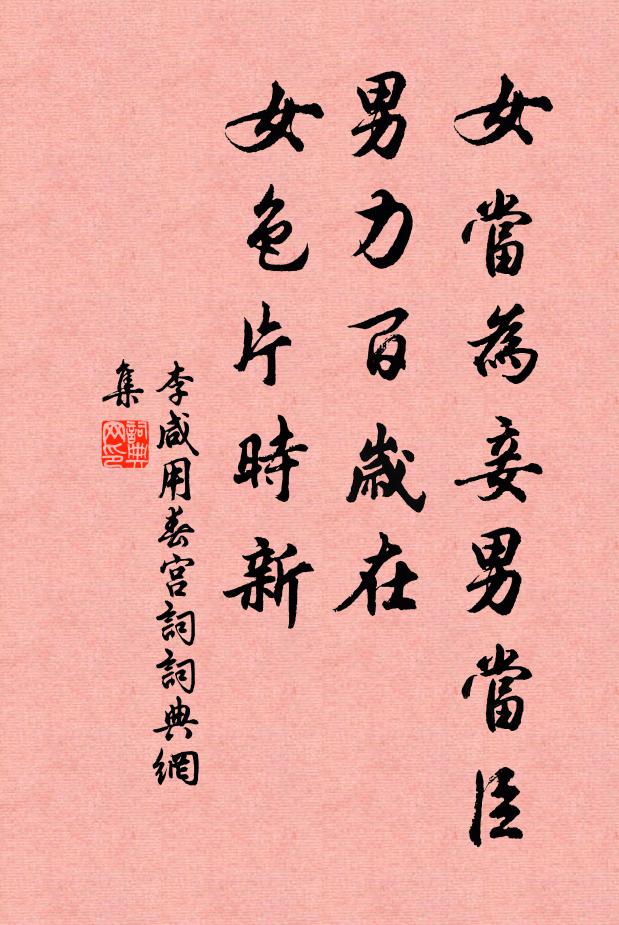 女當為妾男當臣
男力百歲在
女色片時新
李咸用春宮詞詞典網
集
詞典網印